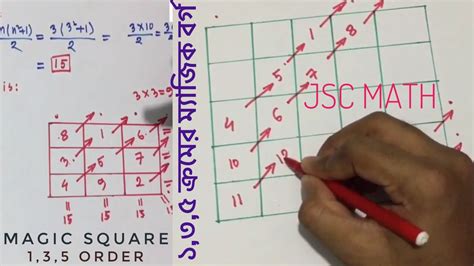 n(n²+1)/2 = 3(3²+1)/2 3×10/2 =
= 15
is:
3×3=9
8 1 6 =
3 5 7 =
4 9 2 =
= = =
15 15 15
MAGIC SQUARE
1,3,5 ORDER
১,৩,৫ ক্রমের ম্যাজিক বর্গ
1 8
5 7
JSC MATH
4 6
10 12
11